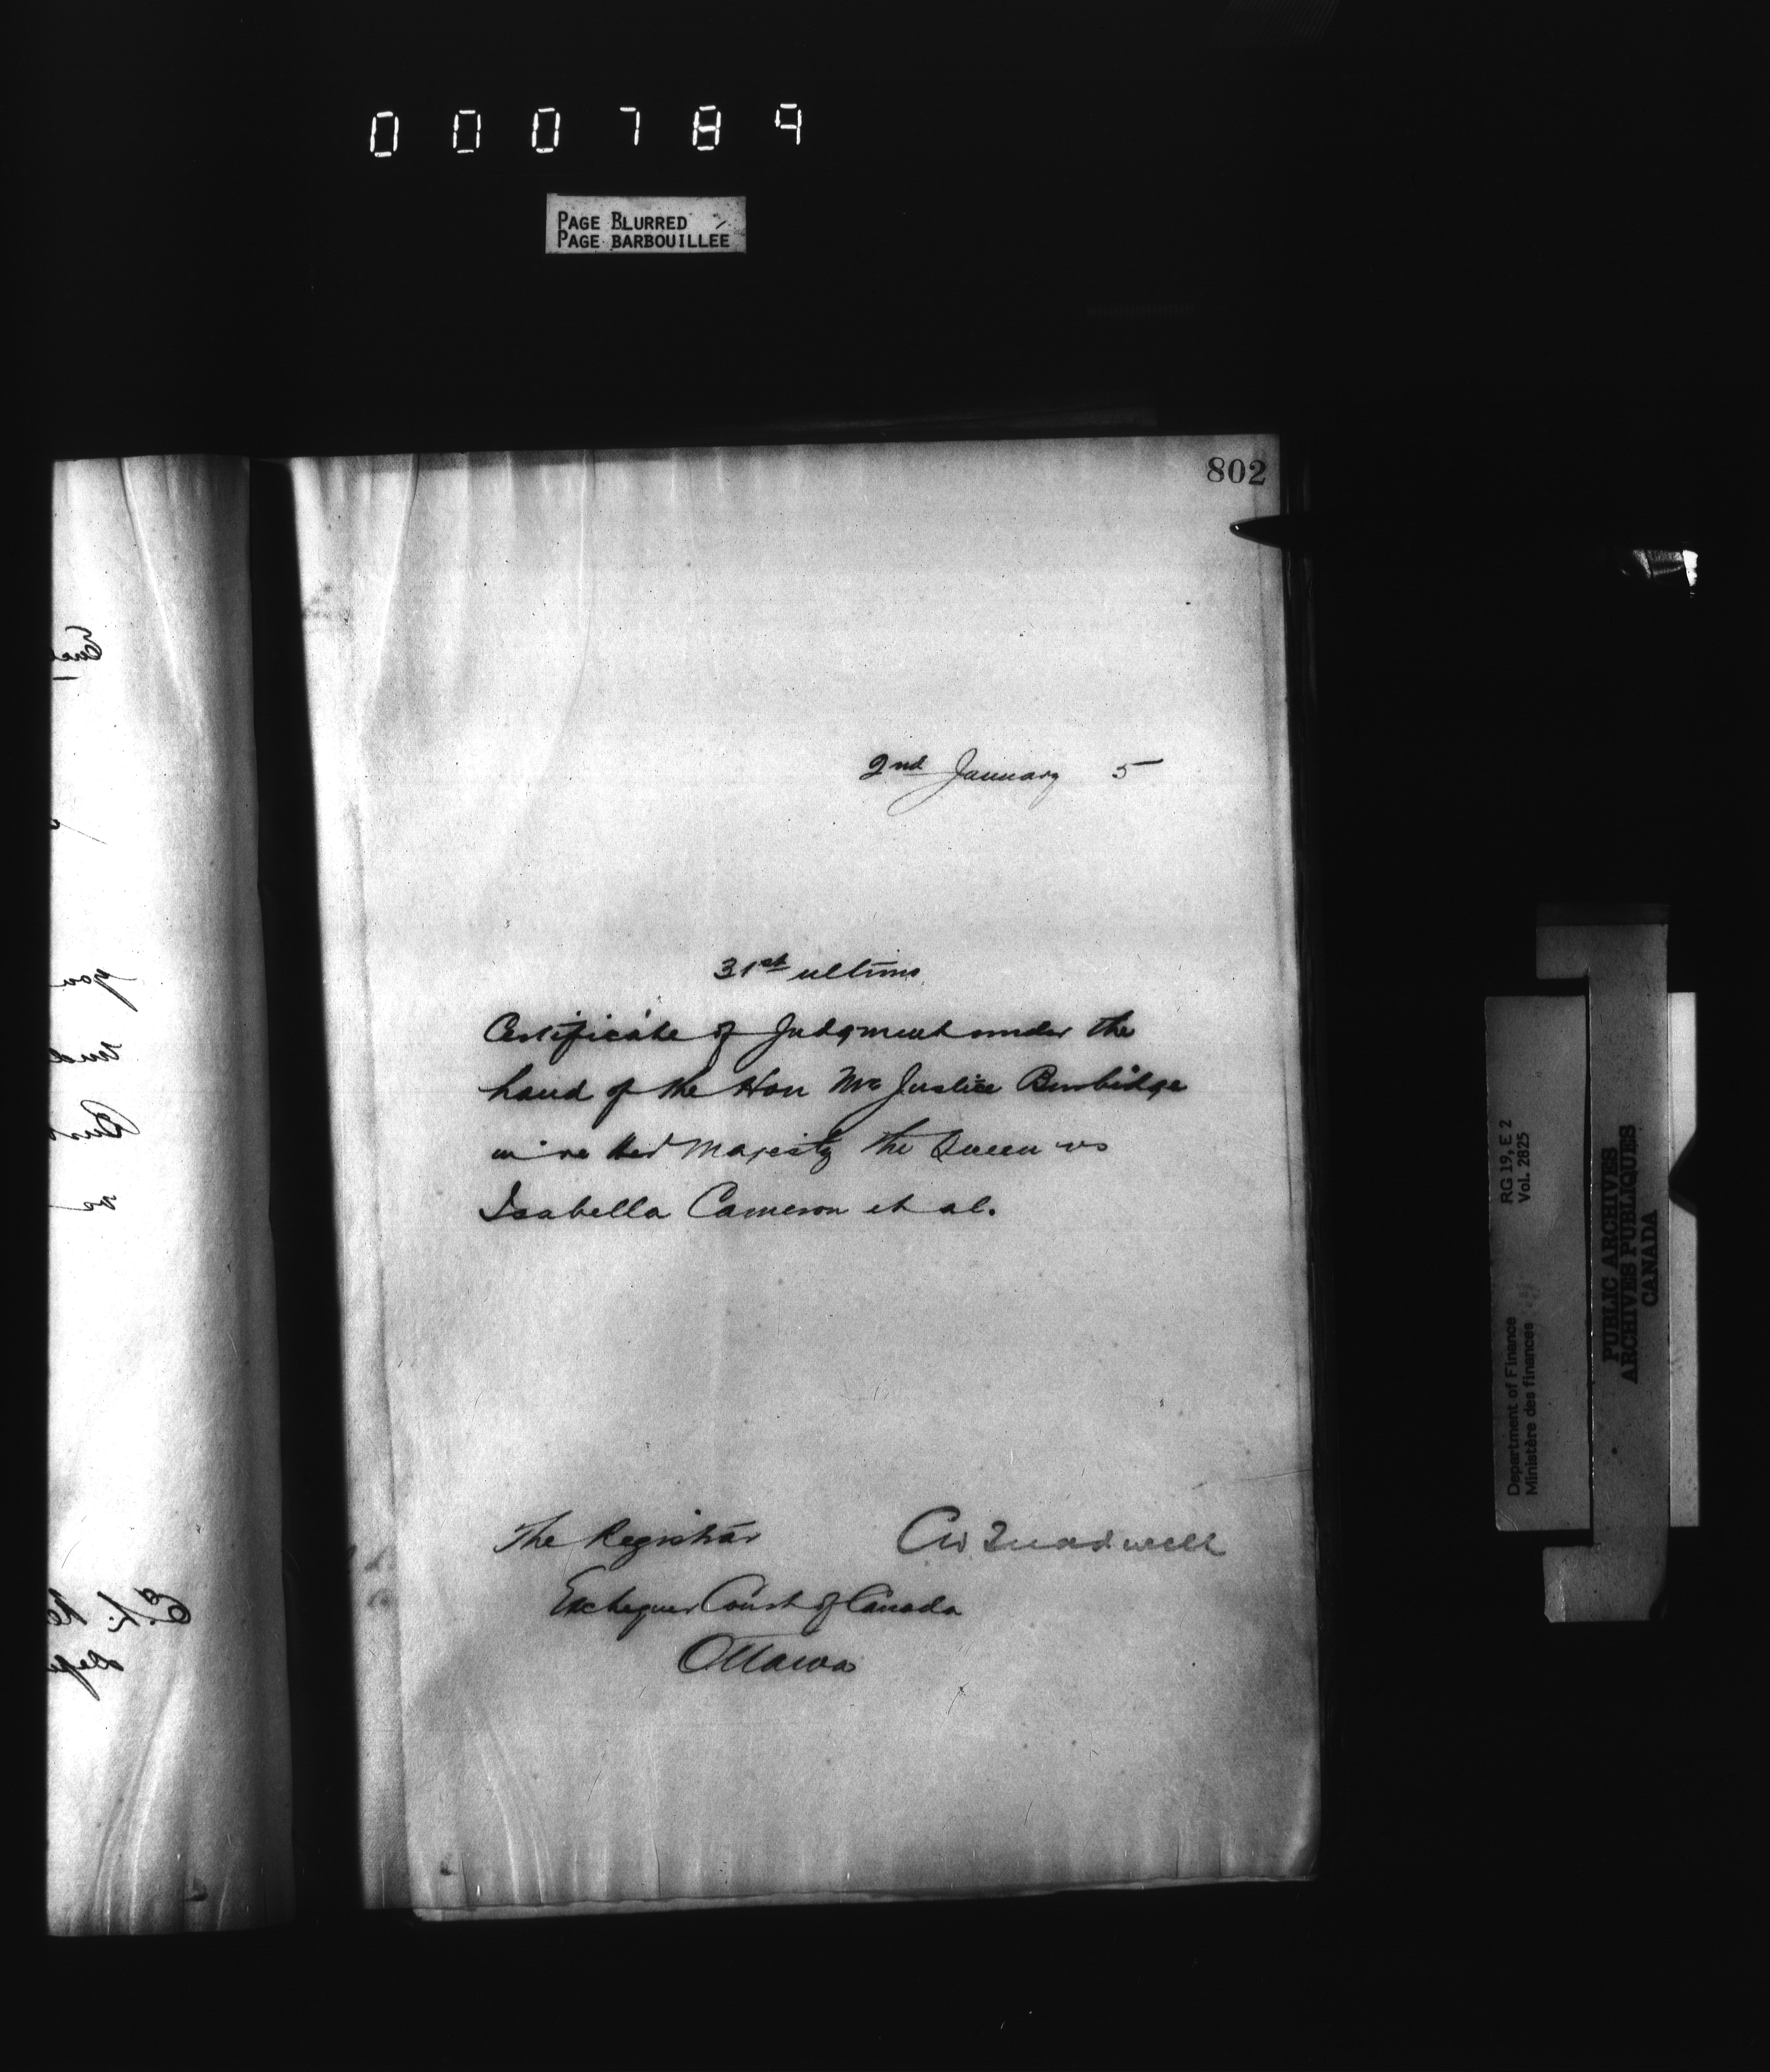 000789
PAGE BLURRED
PAGE BARBOUILLEE
802
2nd January 5
31st ultimo
Certificate of Judgment under the
hand of the Hon Mr Justice Burbidge
in re Her Majesty the Queen vs
Isabella Cameron et al.
The Registrar
CW Treadwell
Exchequer Court of Canada
Ottawa
RG 19, E 2
Vol. 2825
Department of Finance
Ministère des finances
PUBLIC ARCHIVES
ARCHIVES PUBLIQUES
CANADA